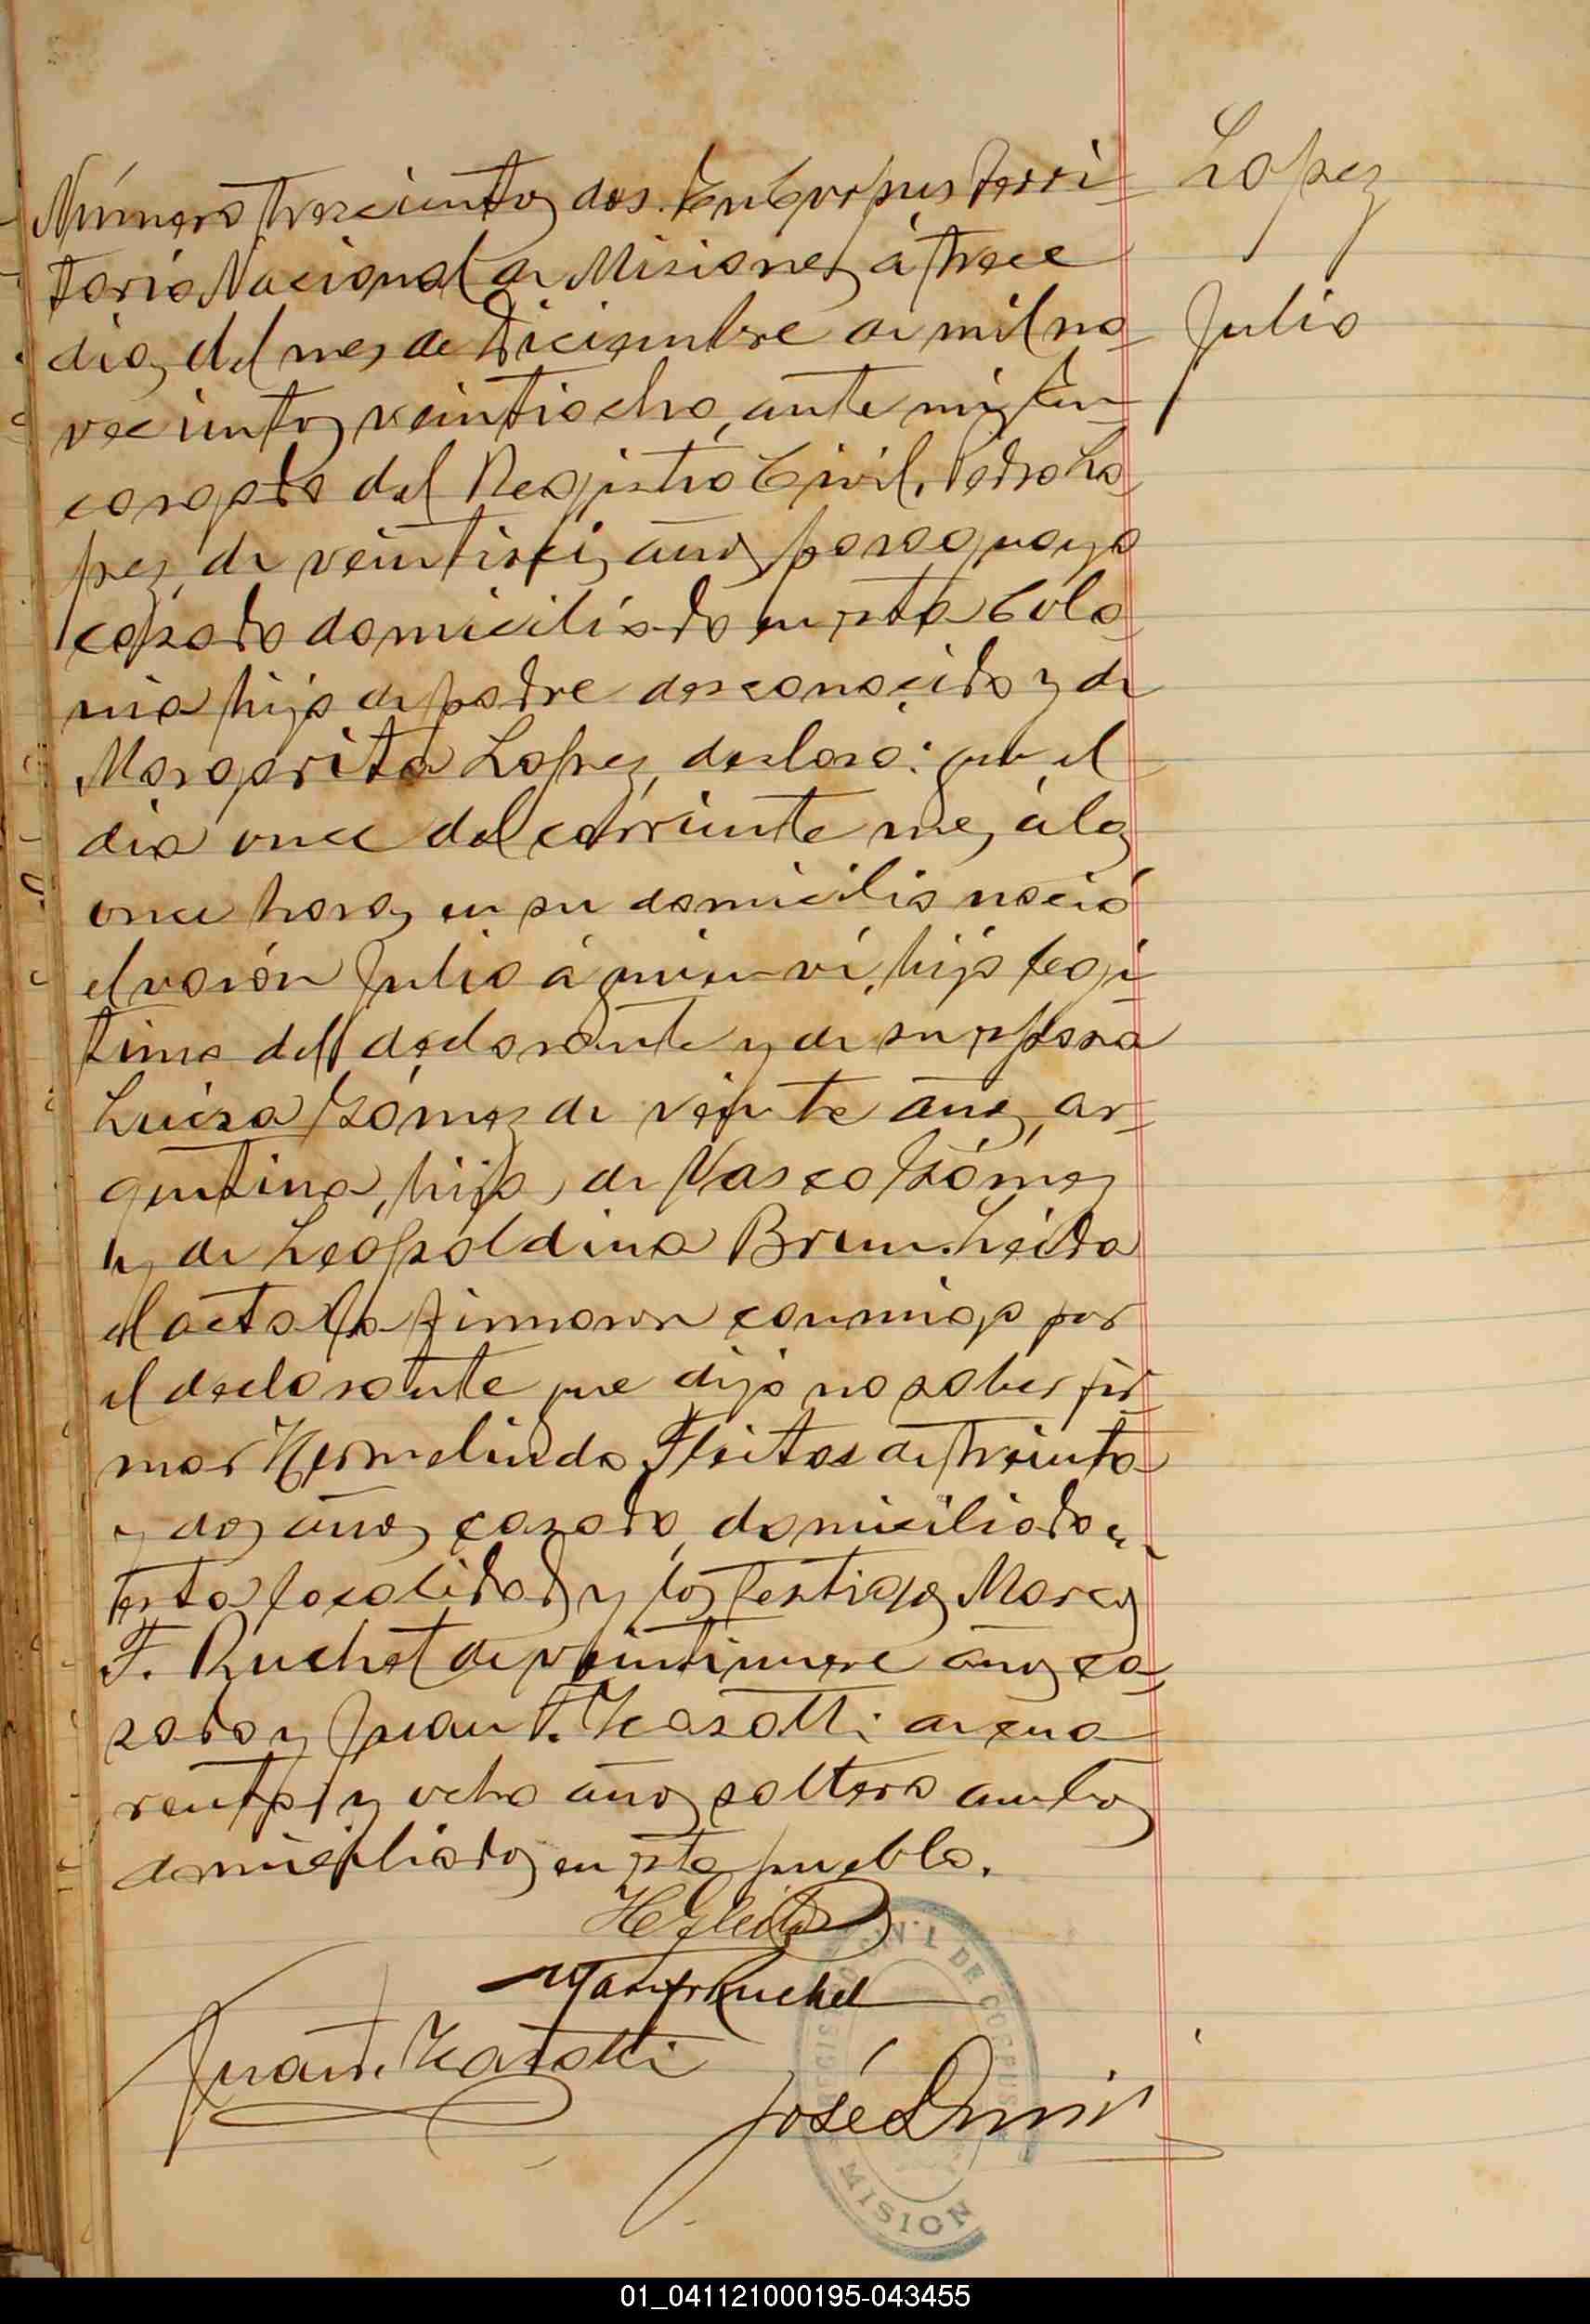 Lopez
Julio
Número trescientos dos. En Corpus Terri-
torio Nacional de Misiones, á trece
dias del mes de Diciembre de mil no-
vecientos veintiocho, ante mi, En-
cargado del Registro Civil, Pedro Lo-
pez, de veintiseis años, paraguayo
casado domiciliado en esta Colo-
nia hijo de padre desconocido y de
Margarita Lopez, declaró: que el
dia once del corriente mes, á las
once horas, en su domicilio nació
el varón Julio á quien ví, hijo legi-
timo del declarante y de su esposa
Luisa Gómez de veinte años, ar-
gentina, hija de Vasco Gómez
y de Leopoldina Brum. Leida
el acta la firmaron conmigo por
el declarante que dijo no saber fir-
mar Hermelindo Fleitas de treinta
y dos años casado, domiciliado en
esta localidad y los testigos Marcos
F. Ruchel de veintinueve años ca-
sado y Juan T. de cua-
renta y ocho años soltero ambos
domiciliados en este pueblo.
HFleitas
Ruchel
Juan T.
José
REGISTRO CIVIL DE CORPUS
MISION
01_041121000195-043455